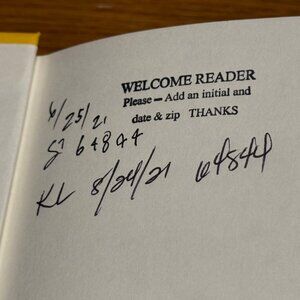 WELCOME READER
Please — Add an initial and
date & zip THANKS
6/25/21
64844
KL 8/24/21 64844